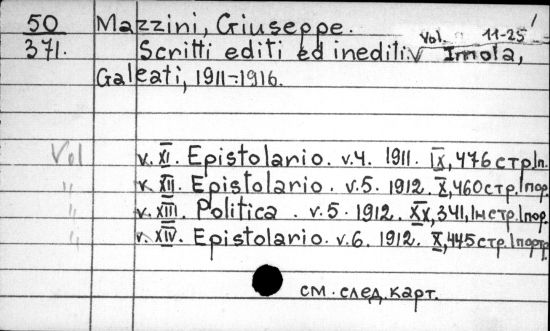 50 Mazzini, Giuseppe.
371. Scritti editi ed inediti. Vol. 11-25 Imola,
Galeati, 1911-1916.
Vol v. XI. Epistolario. v.4. 1911. IX, 476 стр. 1 п.
" v. XII. Epistolario. v.5. 1912. X, 460 стр. 1 пор.
" v. XIII. Politica. v.5. 1912. XX, 341, 1 н стр. 1 пор.
" v. XIV. Epistolario. v.6. 1912. X, 445 стр. 1 портр.
см. след. карт.